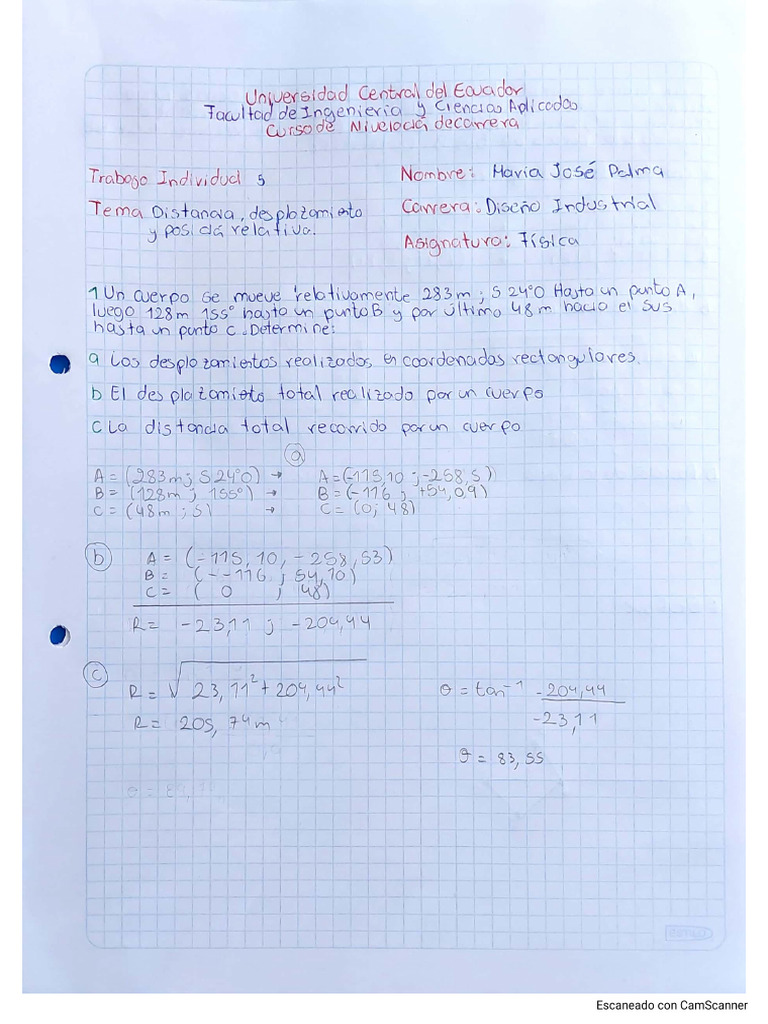 Universidad Central del Ecuador
Facultad de Ingenieria y Ciencias Aplicadas
Curso de Nivelació de carrera
Trabajo Individual 5
Nombre: Maria José Palma
Tema Distancia, desplozamiento
y posició relativa.
Carrera: Diseño Industrial
Asignatura: Física
1 Un cuerpo se mueve relativamente 283m; S 24°O Hasta un punto A,
luego 128m 155° hasta un punto B y por último 48m hacia el sus
hasta un punto c. Determine:
a Los desplozamientos realizados en coordenadas rectangulores.
b El desplazamieto total realizado por un cuerpo
c La distancia total recorrido por un cuerpo
a
A = (283m; S 24°O) → A = (-115,10 ; -258,5)
B = (128m ; 155°) → B = (-116 ; +54,09)
C = (48m ; S) → C = (0; 48)
b A = (-115,10, -258,53)
B = (--116 ; 54,10)
C = ( 0 ; 48)
R = -23,11 ; -204,44
c
R = √23,11² + 204,44²
θ = tan⁻¹ -204,44
-23,11
R = 205,74m
θ = 83,55
Escaneado con CamScanner